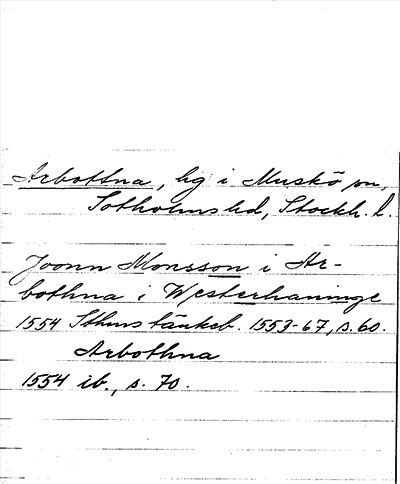 Arbottna, bg i Muskö sn,
Sotholms hd, Stockh. l.
Joonn Monsson i Ar-
bothna i Westerhaninge
1554 Sthms tänkeb. 1553-67, s. 60.
Arbothna
1554 ib., s. 70.